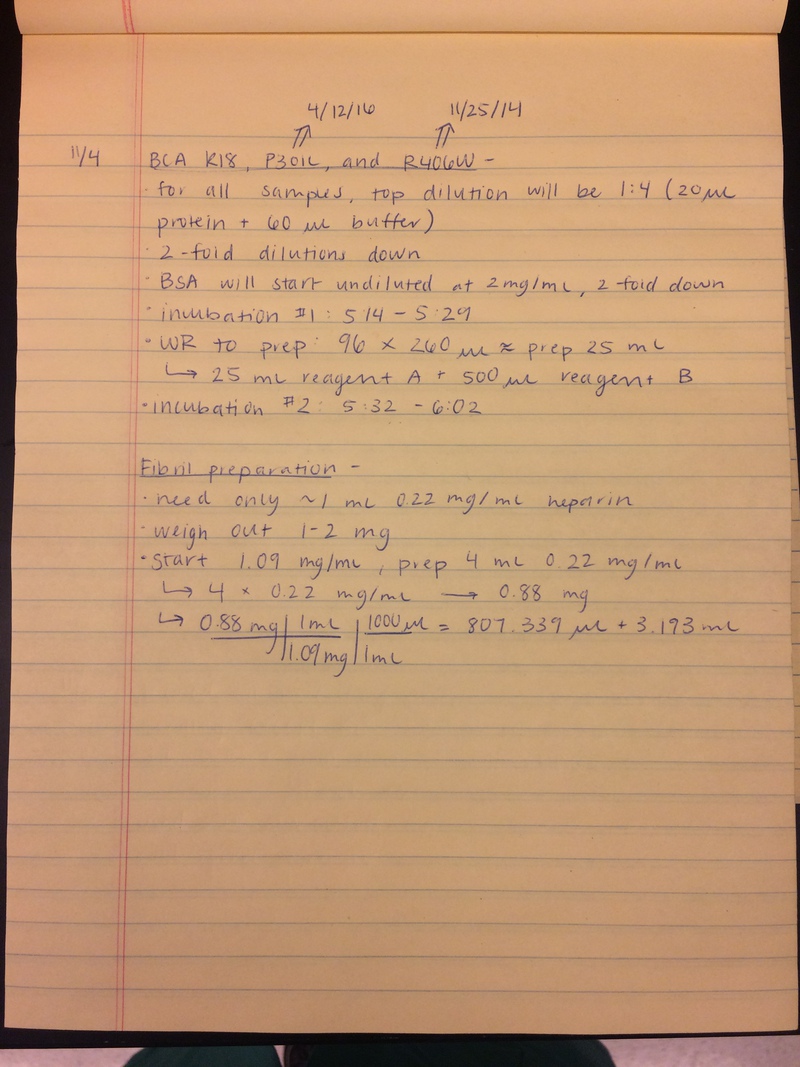 4/12/16 11/25/14
11/4 BCA K18, P301L, and R406W -
· for all samples, top dilution will be 1:4 (20 µL
protein + 60 µL buffer)
· 2-fold dilutions down
· BSA will start undiluted at 2mg/mL, 2-fold down
· incubation #1: 5:14 - 5:29
· WR to prep: 96 × 260 µL ≈ prep 25 mL
↳ 25 mL reagent A + 500 µL reagent B
· incubation #2: 5:32 - 6:02
Fibril preparation -
· need only ~1 mL 0.22 mg/mL heparin
· weigh out 1-2 mg
· start 1.09 mg/mL, prep 4 mL 0.22 mg/mL
↳ 4 × 0.22 mg/mL → 0.88 mg
↳ 0.88 mg | 1mL | 1000 µL = 807.339 µL + 3.193 mL
1.09mg | 1mL